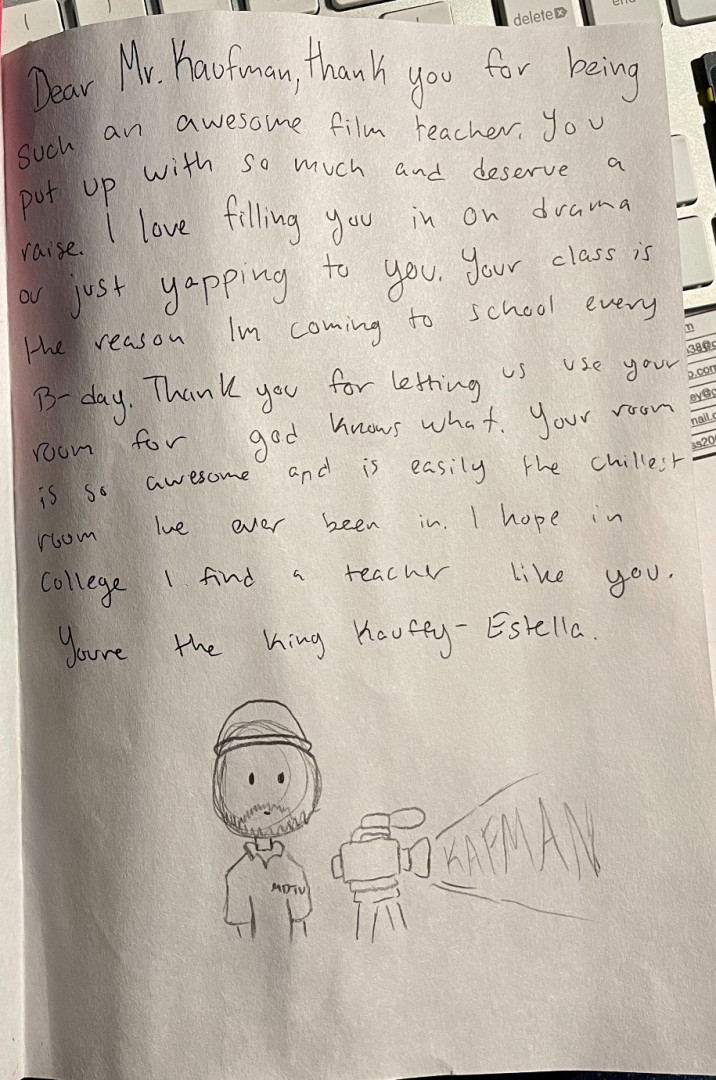 delete
Dear Mr. Kaufman, thank you for being
such an awesome film teacher. You
put up with so much and deserve a
raise. I love filling you in on drama
or just yapping to you. Your class is
the reason Im coming to school every
B-day. Thank you for letting us use your
room for god knows what. Your room
is so awesome and is easily the chillest
room Ive ever been in. I hope in
College I find a teacher like you.
Youre the king Kauffy- Estella.
MDTV
KAFMAN